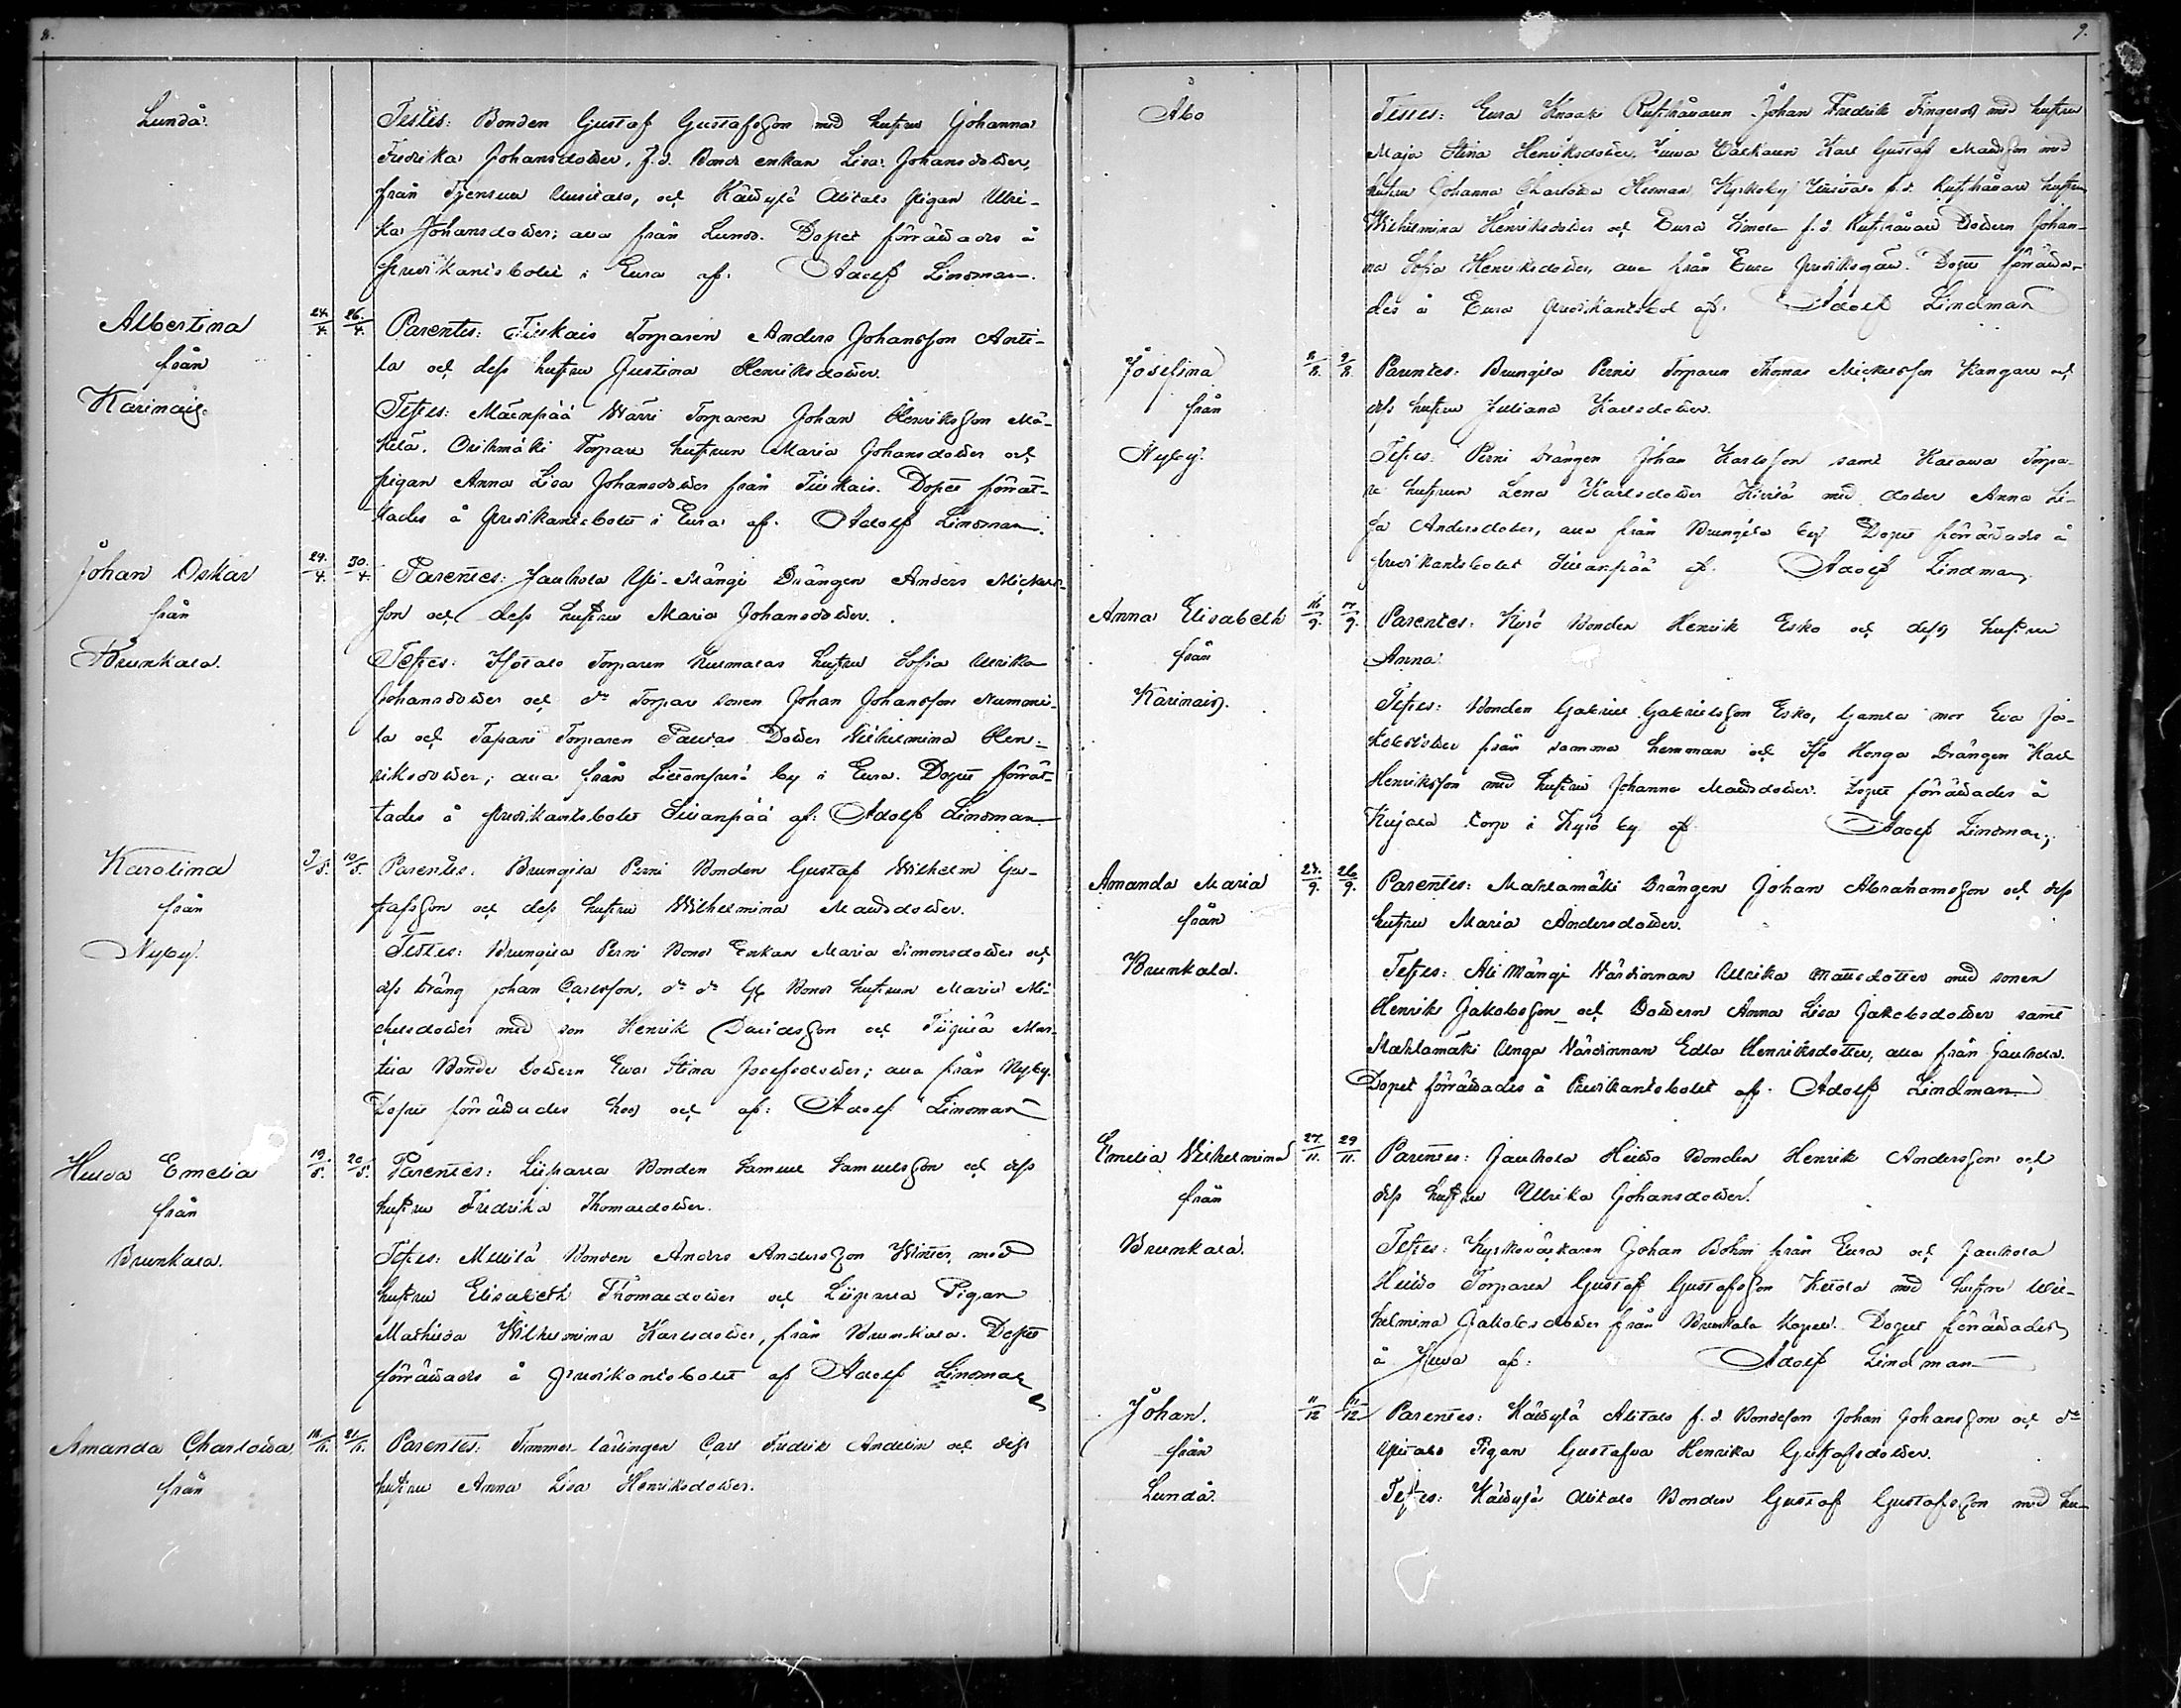 8.
Lundå.
Testes: Bonden Gustaf Gustafsson med hustru Johanna
Fredrika Johansdotter, f.d. Bonde enkan Lisa Johansdotter,
från och Kättylä Alitalo pigan Ulri-
ka Johansdotter; alla från Lundå. Dopet förrättades å
predikantsbolet i Eura af: Adolf Lindman.
Albertina
från
Karinais.
24./4. 26./4.
Parentes: Tiskais Torparen Anders Johansson Antti-
la och dess hustru Justina Henriksdotter.
Testes: Mäenpää Wärri Torparen Johan Henriksson Mä-
kelä, Orihmäki Torpare hustrun Maria Johansdotter och
pigan Anna Lisa Johansdotter från Tiskais. Dopet förrät-
tades å predikantsbolet i Eura af. Adolf Lindman.
Johan Oskar
från
Brunkala.
29./4. 30./4.
Parentes: Jauhola Yli-Mängi Drängen Anders Mickels-
son och dess hustru Maria Johansdotter.
Testes: Isotalo Torparen hustru Sofia Ulrika
Johansdotter och do Torpare sonen Johan Johansson Nummi-
la och Tapani Torparen Dotter Wilhelmina Hen-
riksdotter; alla från by i Eura. Dopet förrät-
tades å predikantsbolet Liuanpää af: Adolf Lindman
Karolina
från
Nyby.
9/5. 10/5.
Parentes: Brungila Perni Bonden Gustaf Wilhelm Gu-
stafsson och dess hustru Wilhelmina Mattsdotter.
Testes: Brungila Perni Bond Enkan Maria Simonsdotter och
dess dräng Johan Carlsson, do do Bond hustrun Maria Mi-
chelsdotter med son Henrik Davidsson och Mar-
tila Bonde Dottern Eva Stina Josefsdotter; alla från Nyby.
Dopet förrättades hos och af: Adolf Lindman
Hulda Emelia
från
Brunkala.
19./5. 20/5.
Parentes: Liiparla Bonden Samuel Samuelsson och dess
hustru Fredrika Thomasdotter.
Testes: Mellilä Bonden Anders Andersson Winter, med
hustru Elisabeth Thomasdotter och Liiparla Pigan
Mathilda Wilhelmina Karlsdotter, från Brunkala. Dopet
förrättades å predikantsbolet af Adolf Lindman
Amanda Charlotta
från
Parentes: Timmer lärlingen Carl Fredrik Andelin och dess
hustru Anna Lisa Henriksdotter.
9.
Åbo
Testes: Eura Knaapi Rusthållaren Johan Fredrik Fingeroos med hustru
Maja Stina Henriksdotter, Karl Gustaf Mattsson med
hustru Johanna Charlotta Herman, Kyrkoby f.d. Rusthållare hustrun
Wilhelmina Henriksdotter och Eura Simola f.d. Rusthållare Dottern Johan-
na Sofia Henriksdotter, alla från Eura Predikogäll. Dopet förrätta-
des å Eura Predikantsbol af: Adolf Lindman
Josefina
från
Nyby.
8/8. 9/8.
Parentes: Brungila Perni Torparen Thomas Mickelsson Kangare och
dess hustru Juliana Karlsdotter.
Testes: Perni Drängen Johan Karlsson samt Torpa-
re hustrun Lena Karlsdotter med dotter Anna Li-
sa Andersdotter, alla från Brungila by. Dopet förrättades å
predikantsbolet Liuanpää af. Adolf Lindman.
Anna Elisabeth
från
Karinais.
16/9. 17/9.
Parentes: Kyrö Bonden Henrik Esko och dess hustru
Anna.
Testes: Bonden Gabriel Gabrielsson Esko, Gamla mor Eva Ja-
kobsdotter från samma hemman och Iso Honga Drängen Karl
Henriksson med hustru Johanna Mattsdotter. Dopet förrättades å
Kujala torp i Kyrö by af. Adolf Lindman.
Amanda Maria
från
Brunkala.
23./9. 26/9.
Parentes: Mahlamäki Drängen Johan Abrahamsson och dess
hustru Maria Andersdotter.
Testes: Ali Mängi Värdinnan Ulrika Mattsdotter med sonen
Henrik Jakobsson och Dottern Anna Lisa Jakobsdotter samt
Mahlamäki Unga Värdinnan Edla Henriksdotter, alla från Jauhola.
Dopet förrättades å Predikantsbolet af. Adolf Lindman
Emelia Wilhelmina
från
Brunkala.
27./11. 29/11.
Parentes: Jauhola Heido Bonden Henrik Andersson och
dess hustru Ulrika Johansdotter.
Testes: Kyrkoväktaren Johan Böhm från Eura och Jauhola
Heido Torparen Gustaf Gustafsson Ketola med hustru Wil-
helmina Jakobsdotter från Brunkala Kapell. Dopet förrättades
å af: Adolf Lindman
Johan.
från
Lundå.
11/12 11/12
Parentes: Kättylä Alitalo f.d. Bondeson Johan Johansson och do
Ylitalo Pigan Gustafva Henrika Gustafsdotter.
Testes: Kättylä Alitalo Bonden Gustaf Gustafsson med hu-